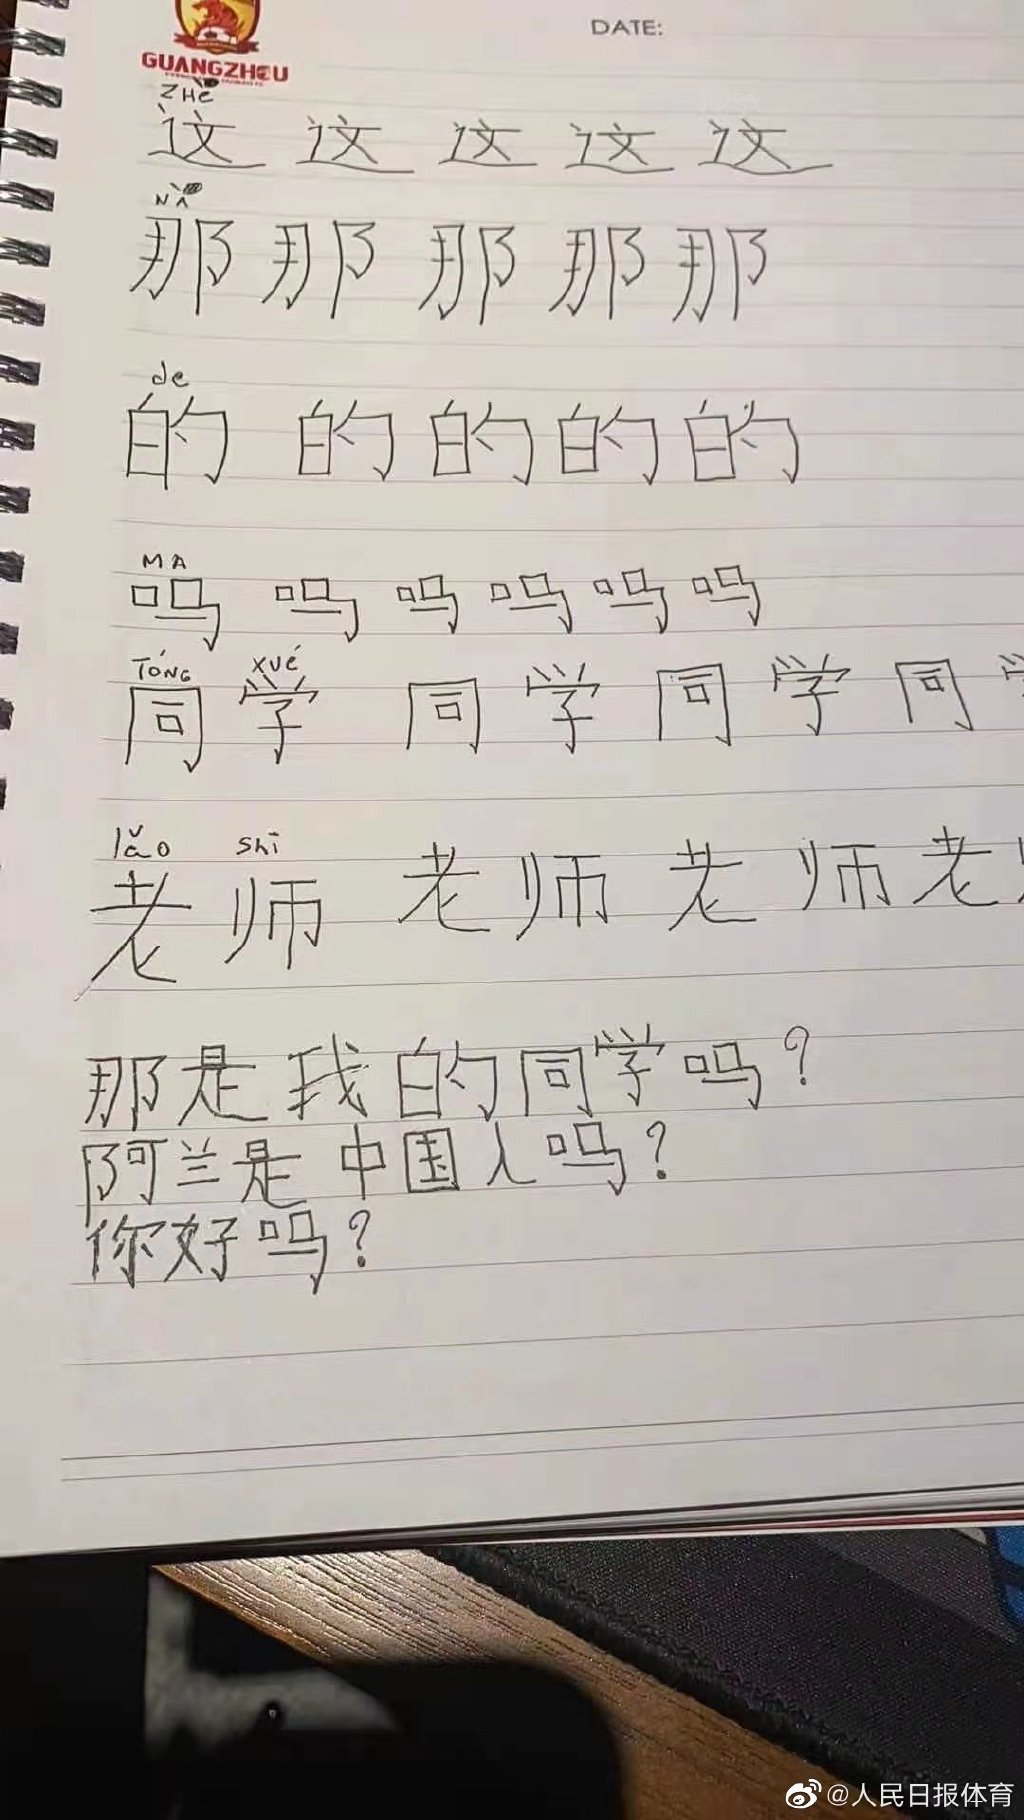 DATE:
GUANGZHOU
ZHÈ
这 这 这 这 这
NÀ
那 那 那 那 那
de
的 的 的 的 的
MA
吗 吗 吗 吗 吗 吗
TÓNG XUÉ
同 学 同 学 同 学 同
lǎo shī
老 师 老 师 老 师 老
那是我的同学吗?
阿兰是中国人吗?
你好吗?
@人民日报体育